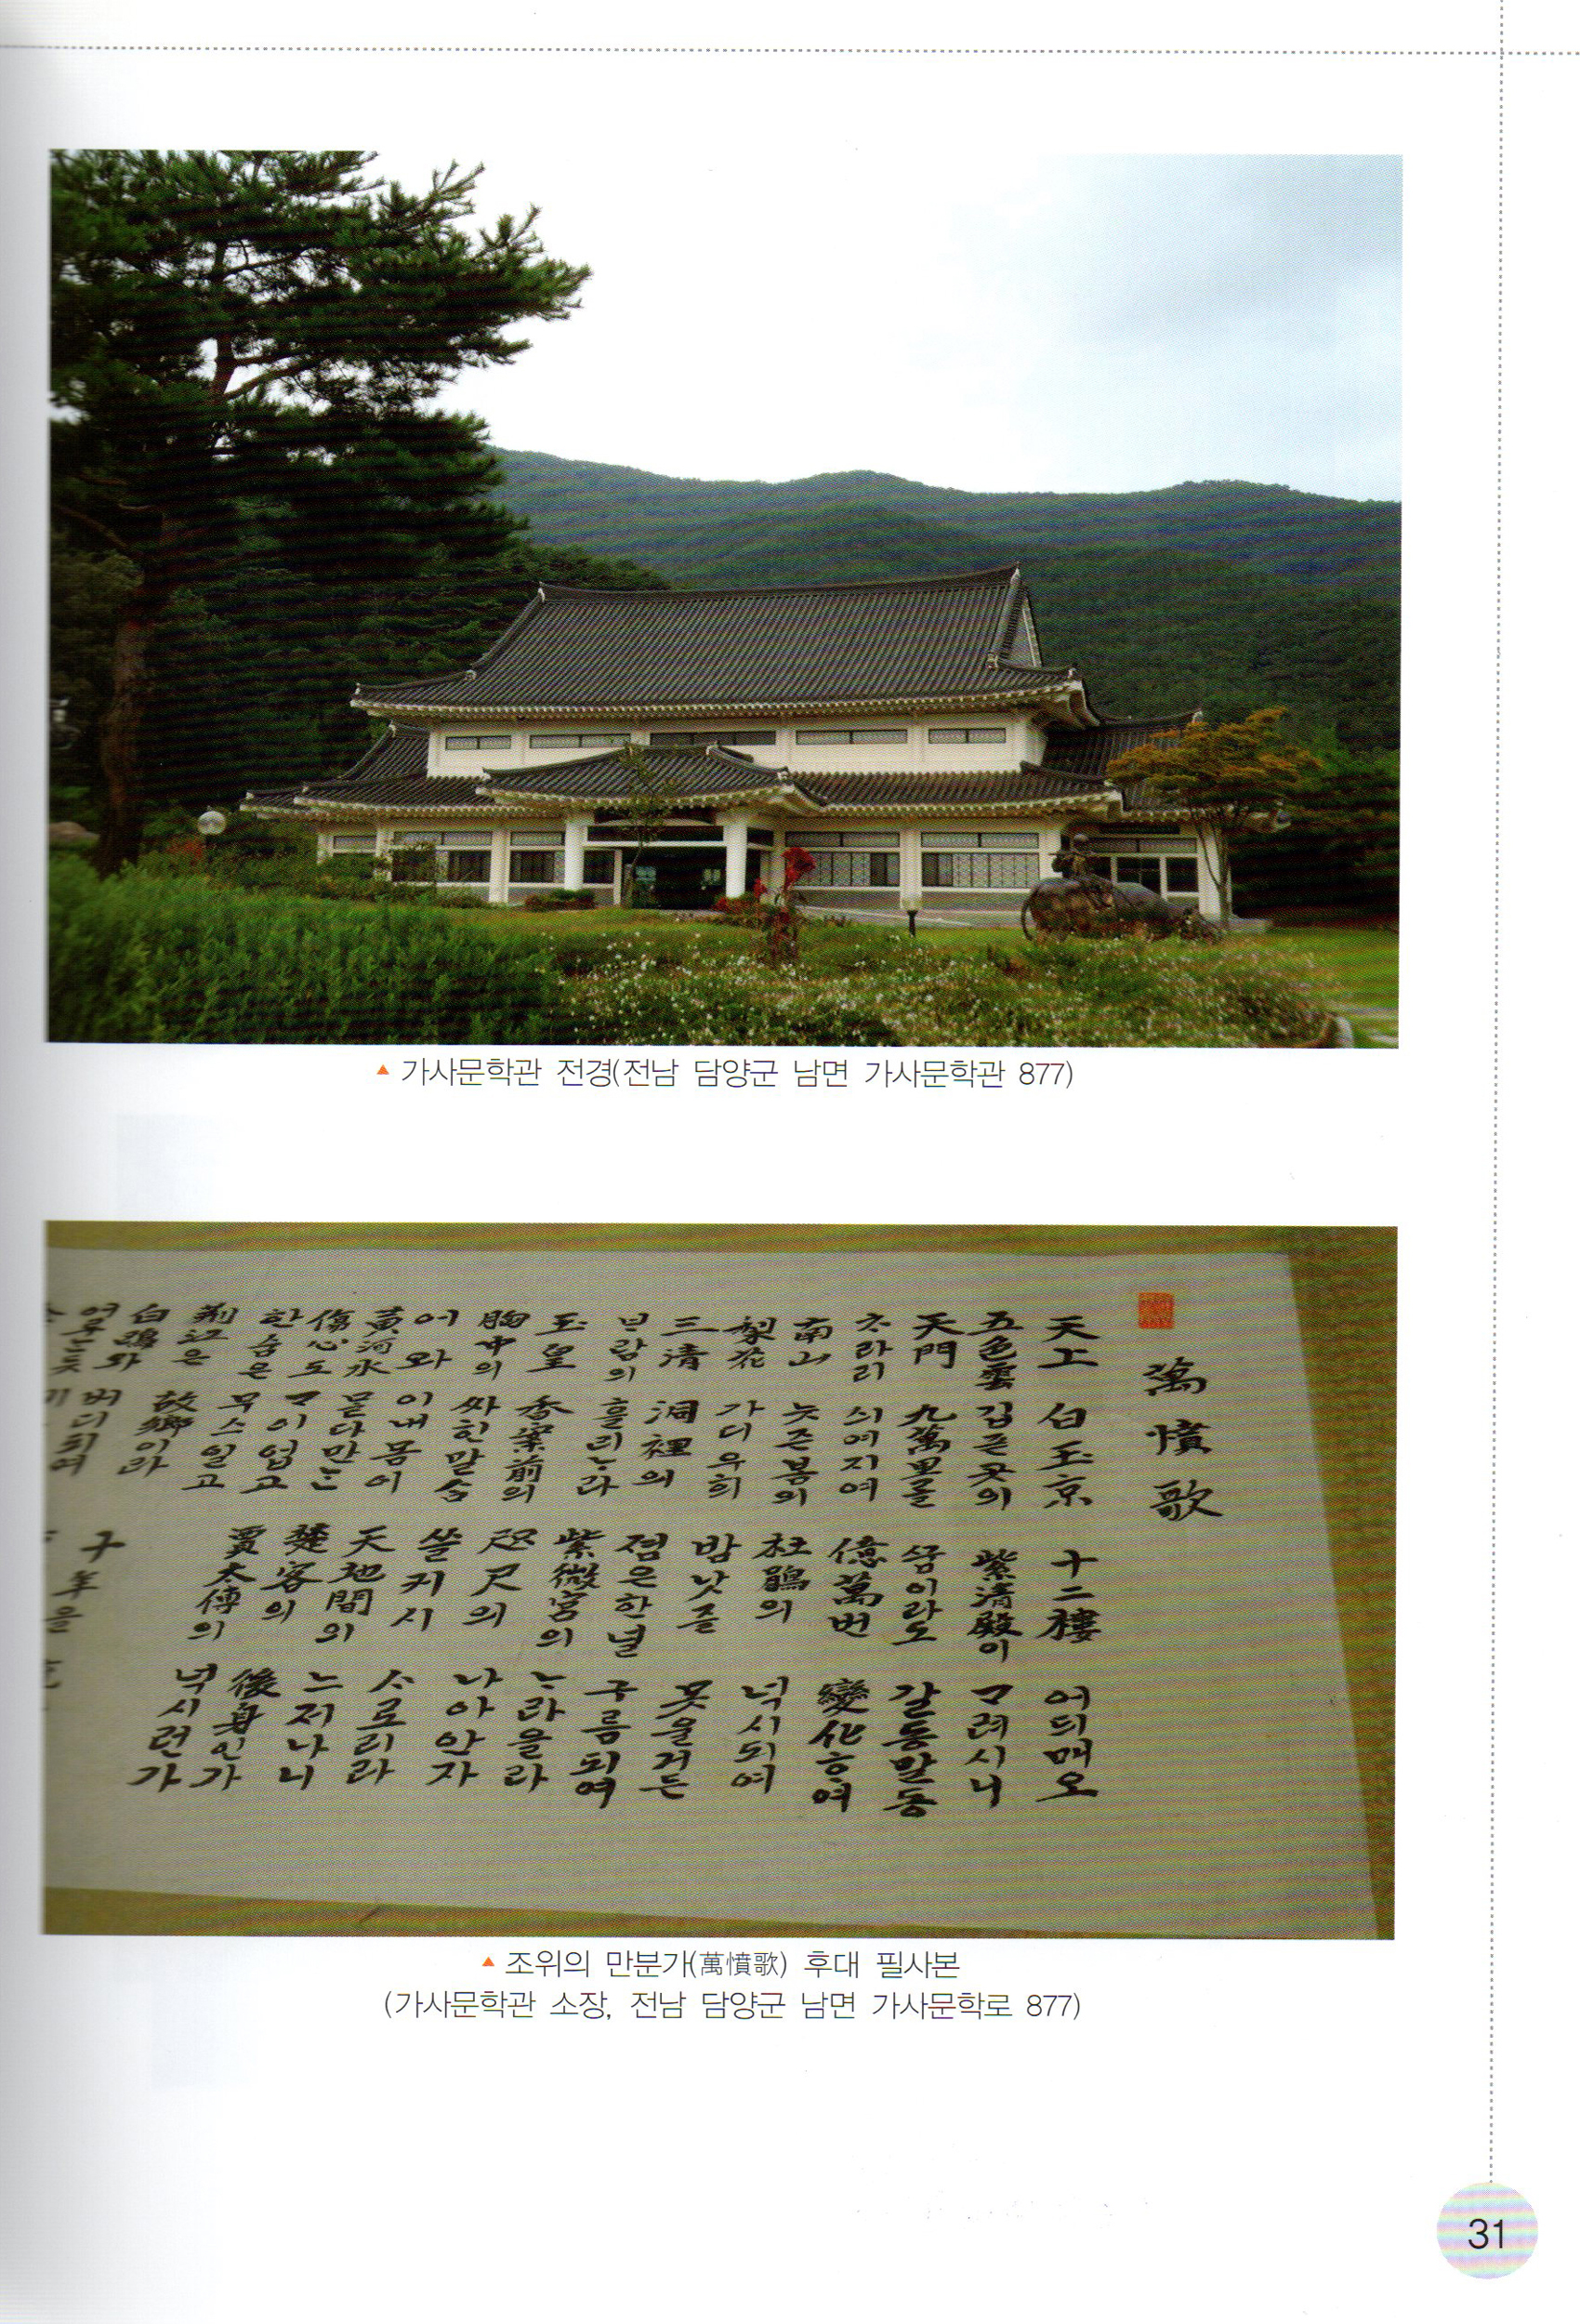 ▲ 가사문학관 전경(전남 담양군 남면 가사문학관 877)
萬憤歌
天上 白玉京 十二樓 어듸매오
五色雲 깁픈곳의 紫淸殿이 ᄀᆞ려시니
天門 九萬里를 ᄭᅮᆷ이라도 갈동말동
ᄎᆞ라리 싀여지여 億萬번 變化ᄒᆞ여
南山 늣즌봄의 杜鵑의 넉시되여
梨花 가디우희 밤낫즐 못울거든
三淸 洞裡의 졈은한널 구름되여
ᄇᆞ람의 흘리ᄂᆞ라 紫微宮의 ᄂᆞ라올라
玉皇 香案前의 咫尺의 나아안자
胸中의 싸힌말슴 쓸커시 ᄉᆞ로리라
어와 이내몸이 天地間의 느저나니
黃河水 몰다만ᄂᆞᆫ 楚客의 後身인가
傷心도 ᄀᆞ이업고 賈太傅의 넉시런가
한숨은 무스일고
荊江은 故鄕이라 十年을
白鷗와 버디되여
▲ 조위의 만분가(萬憤歌) 후대 필사본
(가사문학관 소장, 전남 담양군 남면 가사문학로 877)
31